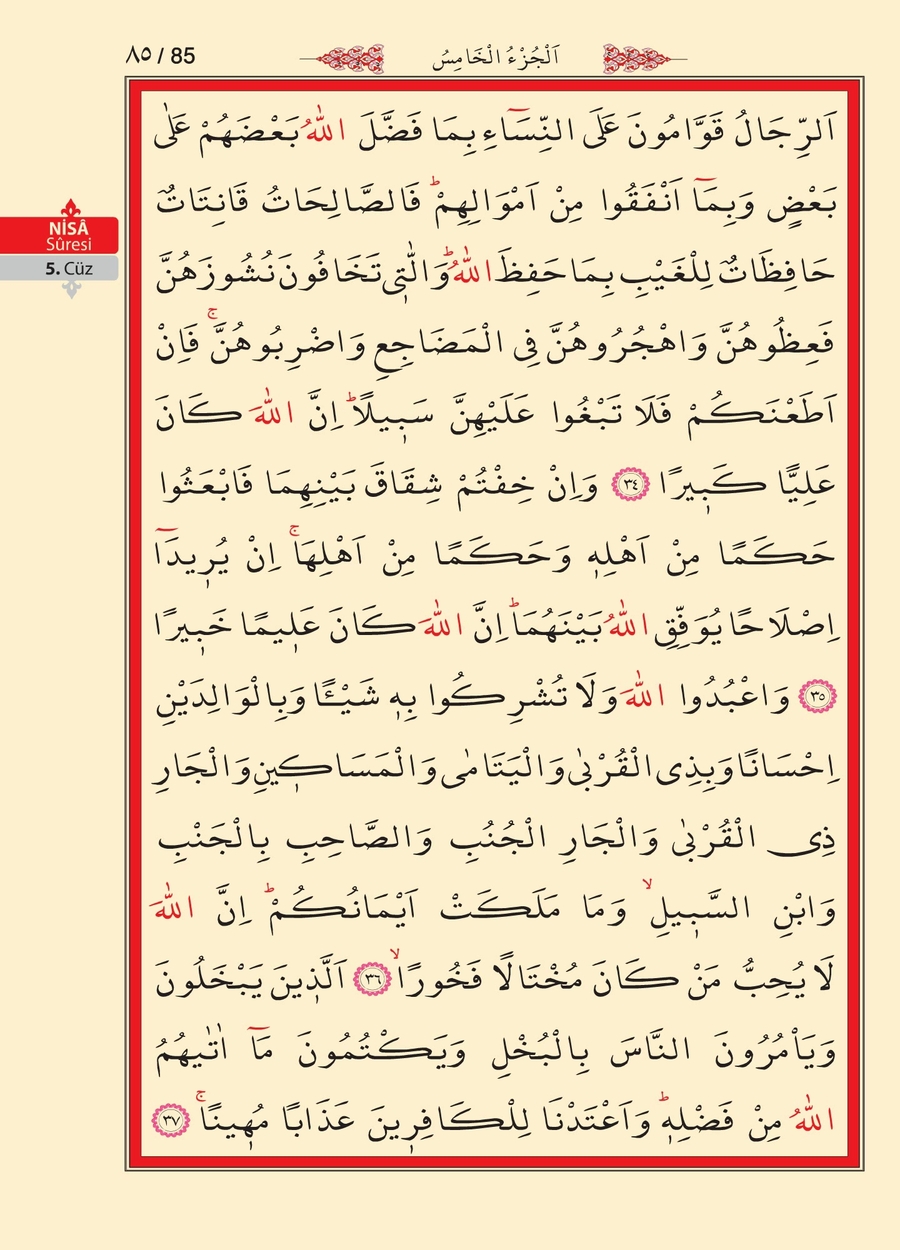 ٨٥ / 85
اَلْجُزْءُ الْخَامِسُ
NİSÂ
Sûresi
5. Cüz
اَلرِّجَالُ قَوَّامُونَ عَلَى النِّسَٓاءِ بِمَا فَضَّلَ اللّٰهُ بَعْضَهُمْ عَلٰى
بَعْضٍ وَبِمَٓا اَنْفَقُوا مِنْ اَمْوَالِهِمْۜ فَالصَّالِحَاتُ قَانِتَاتٌ
حَافِظَاتٌ لِلْغَيْبِ بِمَا حَفِظَ اللّٰهُۜ وَالّٰت۪ي تَخَافُونَ نُشُوزَهُنَّ
فَعِظُوهُنَّ وَاهْجُرُوهُنَّ فِي الْمَضَاجِعِ وَاضْرِبُوهُنَّۚ فَاِنْ
اَطَعْنَكُمْ فَلَا تَبْغُوا عَلَيْهِنَّ سَب۪يلًاۜ اِنَّ اللّٰهَ كَانَ
عَلِيًّا كَب۪يرًا ﴿٣٤﴾ وَاِنْ خِفْتُمْ شِقَاقَ بَيْنِهِمَا فَابْعَثُوا
حَكَمًا مِنْ اَهْلِه۪ وَحَكَمًا مِنْ اَهْلِهَاۚ اِنْ يُر۪يدَٓا
اِصْلَاحًا يُوَفِّقِ اللّٰهُ بَيْنَهُمَاۜ اِنَّ اللّٰهَ كَانَ عَل۪يمًا خَب۪يرًا
﴿٣٥﴾ وَاعْبُدُوا اللّٰهَ وَلَا تُشْرِكُوا بِه۪ شَيْـًٔا وَبِالْوَالِدَيْنِ
اِحْسَانًا وَبِذِي الْقُرْبٰى وَالْيَتَامٰى وَالْمَسَاك۪ينِ وَالْجَارِ
ذِي الْقُرْبٰى وَالْجَارِ الْجُنُبِ وَالصَّاحِبِ بِالْجَنْبِ
وَابْنِ السَّب۪يلِۙ وَمَا مَلَكَتْ اَيْمَانُكُمْۜ اِنَّ اللّٰهَ
لَا يُحِبُّ مَنْ كَانَ مُخْتَالًا فَخُورًاۙ ﴿٣٦﴾ اَلَّذ۪ينَ يَبْخَلُونَ
وَيَأْمُرُونَ النَّاسَ بِالْبُخْلِ وَيَكْتُمُونَ مَٓا اٰتٰيهُمُ
اللّٰهُ مِنْ فَضْلِه۪ۜ وَاَعْتَدْنَا لِلْكَافِر۪ينَ عَذَابًا مُه۪ينًاۚ ﴿٣٧﴾